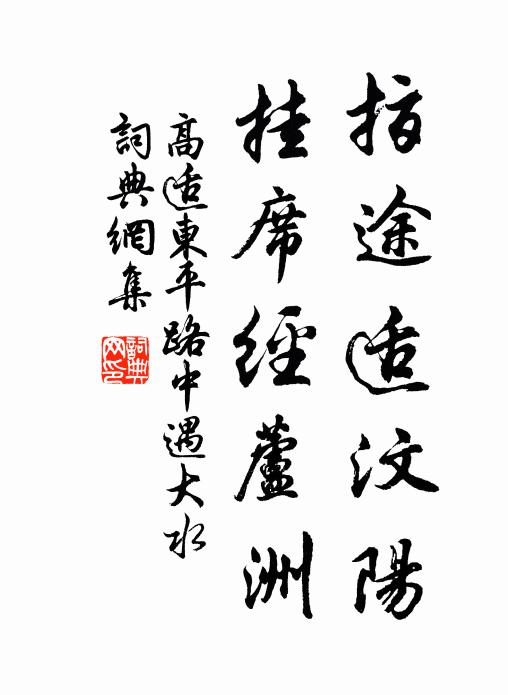 指途适汶陽
挂席經蘆洲
高适東平路中遇大水
詞典網集
詞典網印